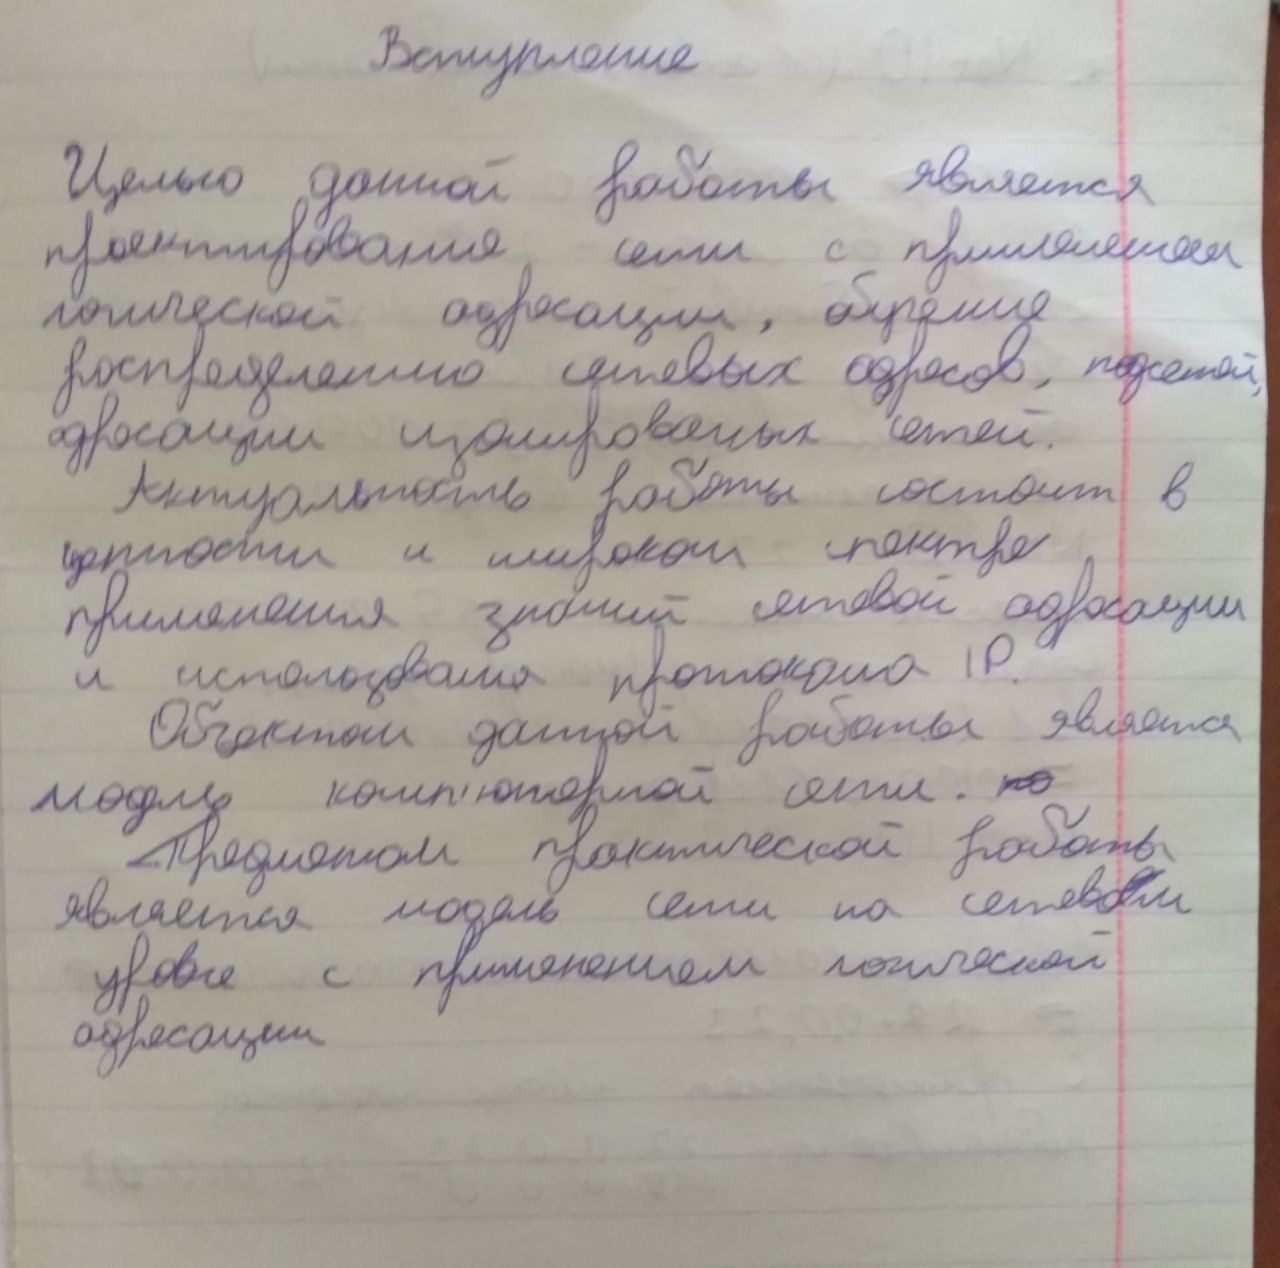 Вступление
Целью данной работы является
проектирование сети с применением
логической адресации, обучение
распределению сетевых адресов, подсетей,
адресации изолированых сетей.
Актуальность работы состоит в
ценности и широком спектре
применения знаний сетевой адресации
и использования протокола IP.
Объектом данной работы является
модель комп'ютерной сети.
Предметом практической работы
является модель сети на сетевом
уровне с применением логической
адресации